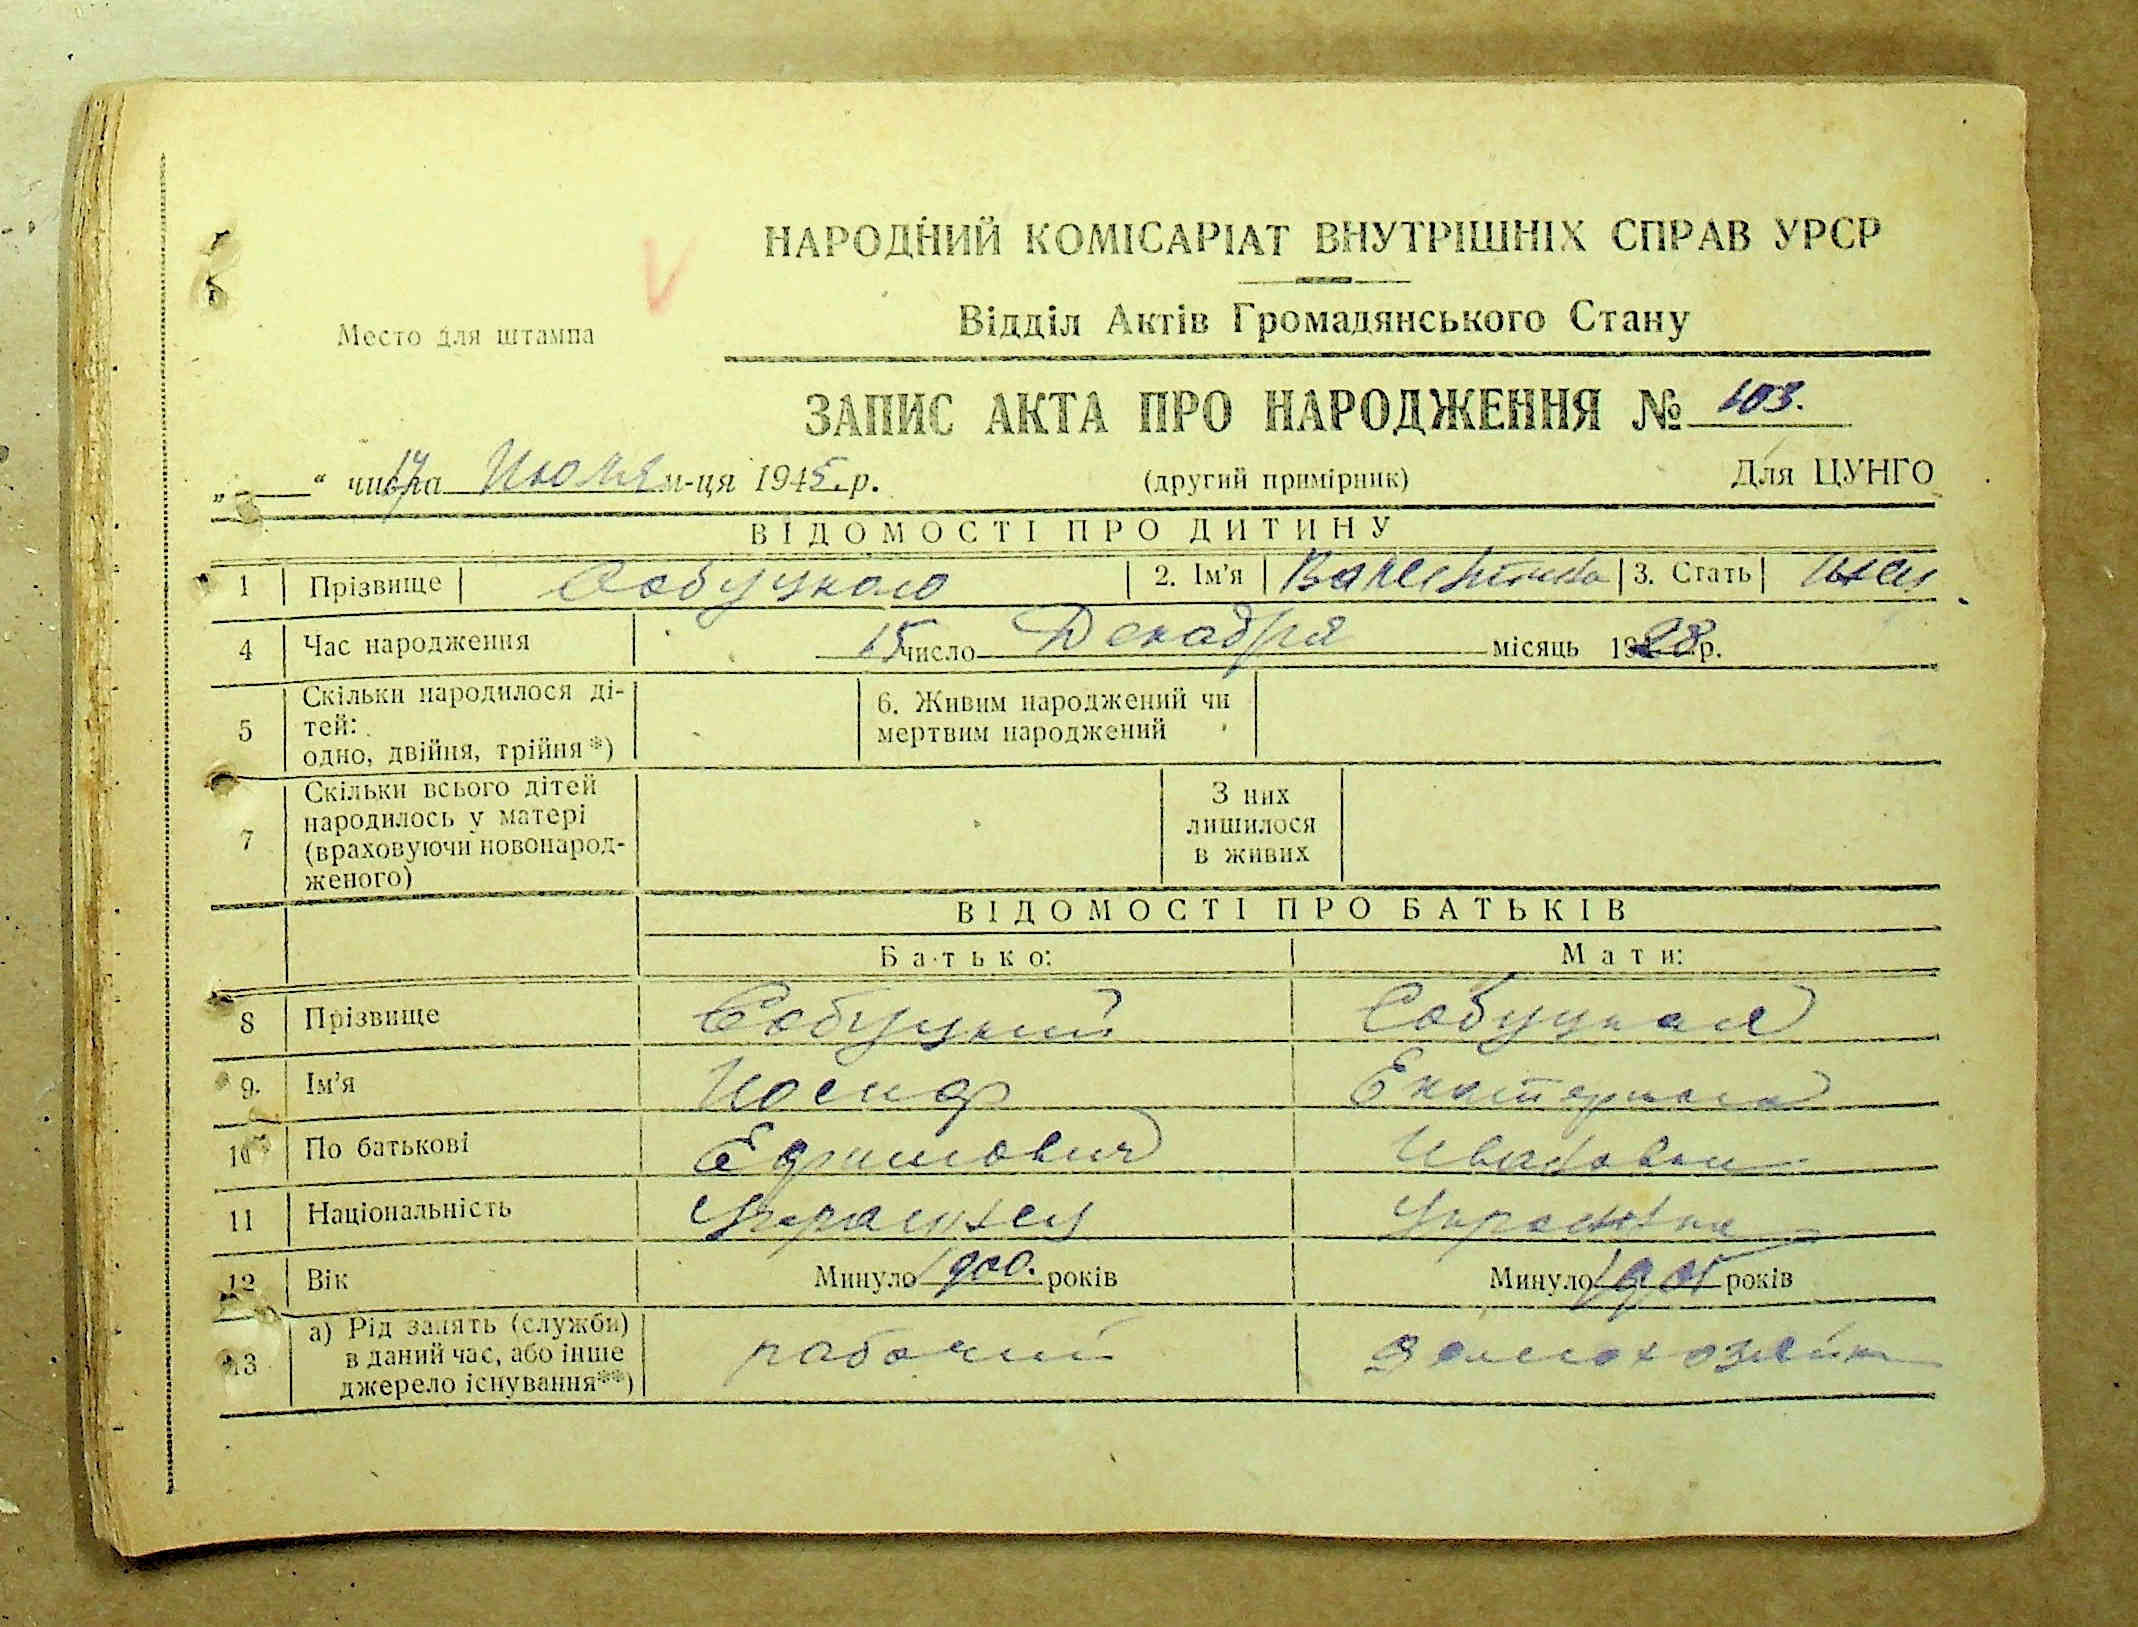 НАРОДНИЙ КОМІСАРІАТ ВНУТРІШНІХ СПРАВ УРСР
Место для штампа
Відділ Актів Громадянського Стану
ЗАПИС АКТА ПРО НАРОДЖЕННЯ № 103.
„ “ числа 17 Июля м-ця 1945 р. (другий примірник) Для ЦУНГО
ВІДОМОСТІ ПРО ДИТИНУ
1 Прізвище 2. Ім'я Валентина 3. Стать жен
4 Час народження 15 число Декабря місяць 1928 р.
5 Скільки народилося ді-
тей:
одно, двійня, трійня*)
6. Живим народжений чи
мертвим народжений
7 Скільки всього дітей
народилось у матері
(враховуючи новонарод-
женого)
З них
лишилося
в живих
ВІДОМОСТІ ПРО БАТЬКІВ
Батько: Мати:
8 Прізвище Собуцкий Собуцкая
9. Ім'я Иосиф Екатерина
10 По батькові Ефимович Ивановна
11 Національність Украинец Украинка
12 Вік Минуло 1900. років Минуло 1905 років
13 а) Рід занять (служби)
в даний час, або інше
джерело існування**)
рабочий домохозяйка